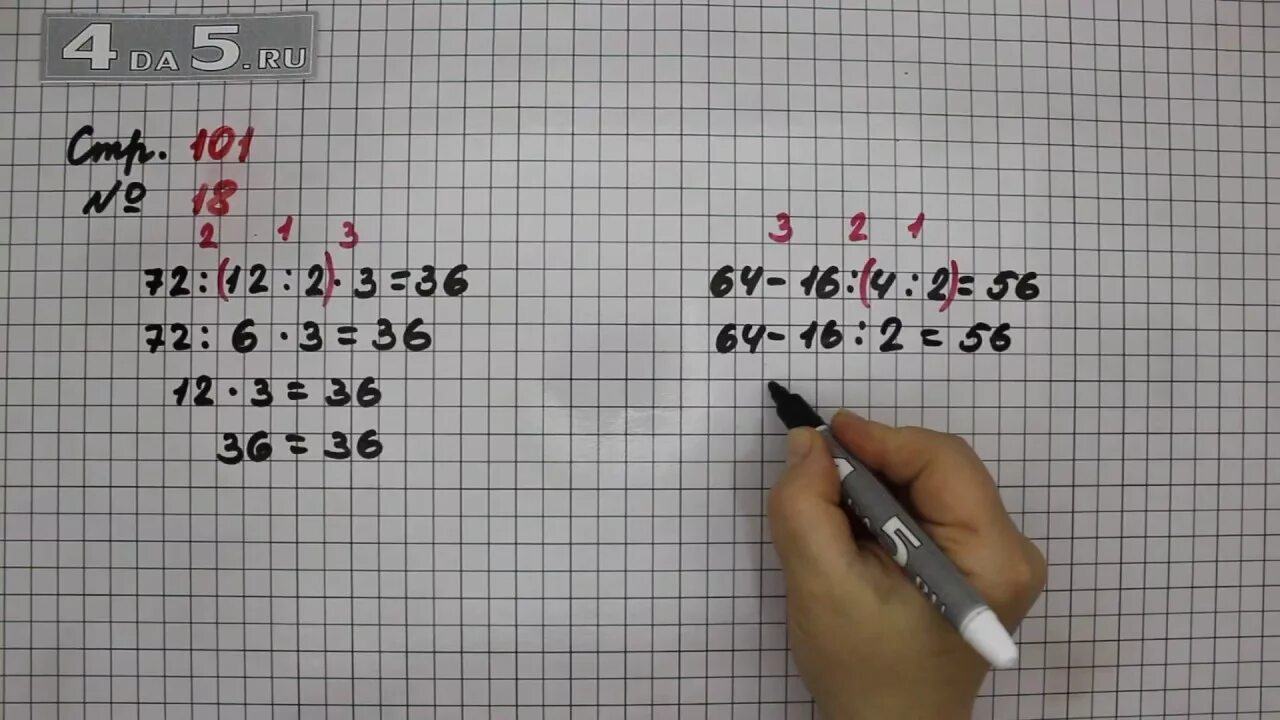 4DA5.RU
Стр. 101
№ 18
2 1 3
72:(12:2)·3=36
72:6·3=36
12·3=36
36=36
3 2 1
64-16:(4:2)=56
64-16:2=56
5